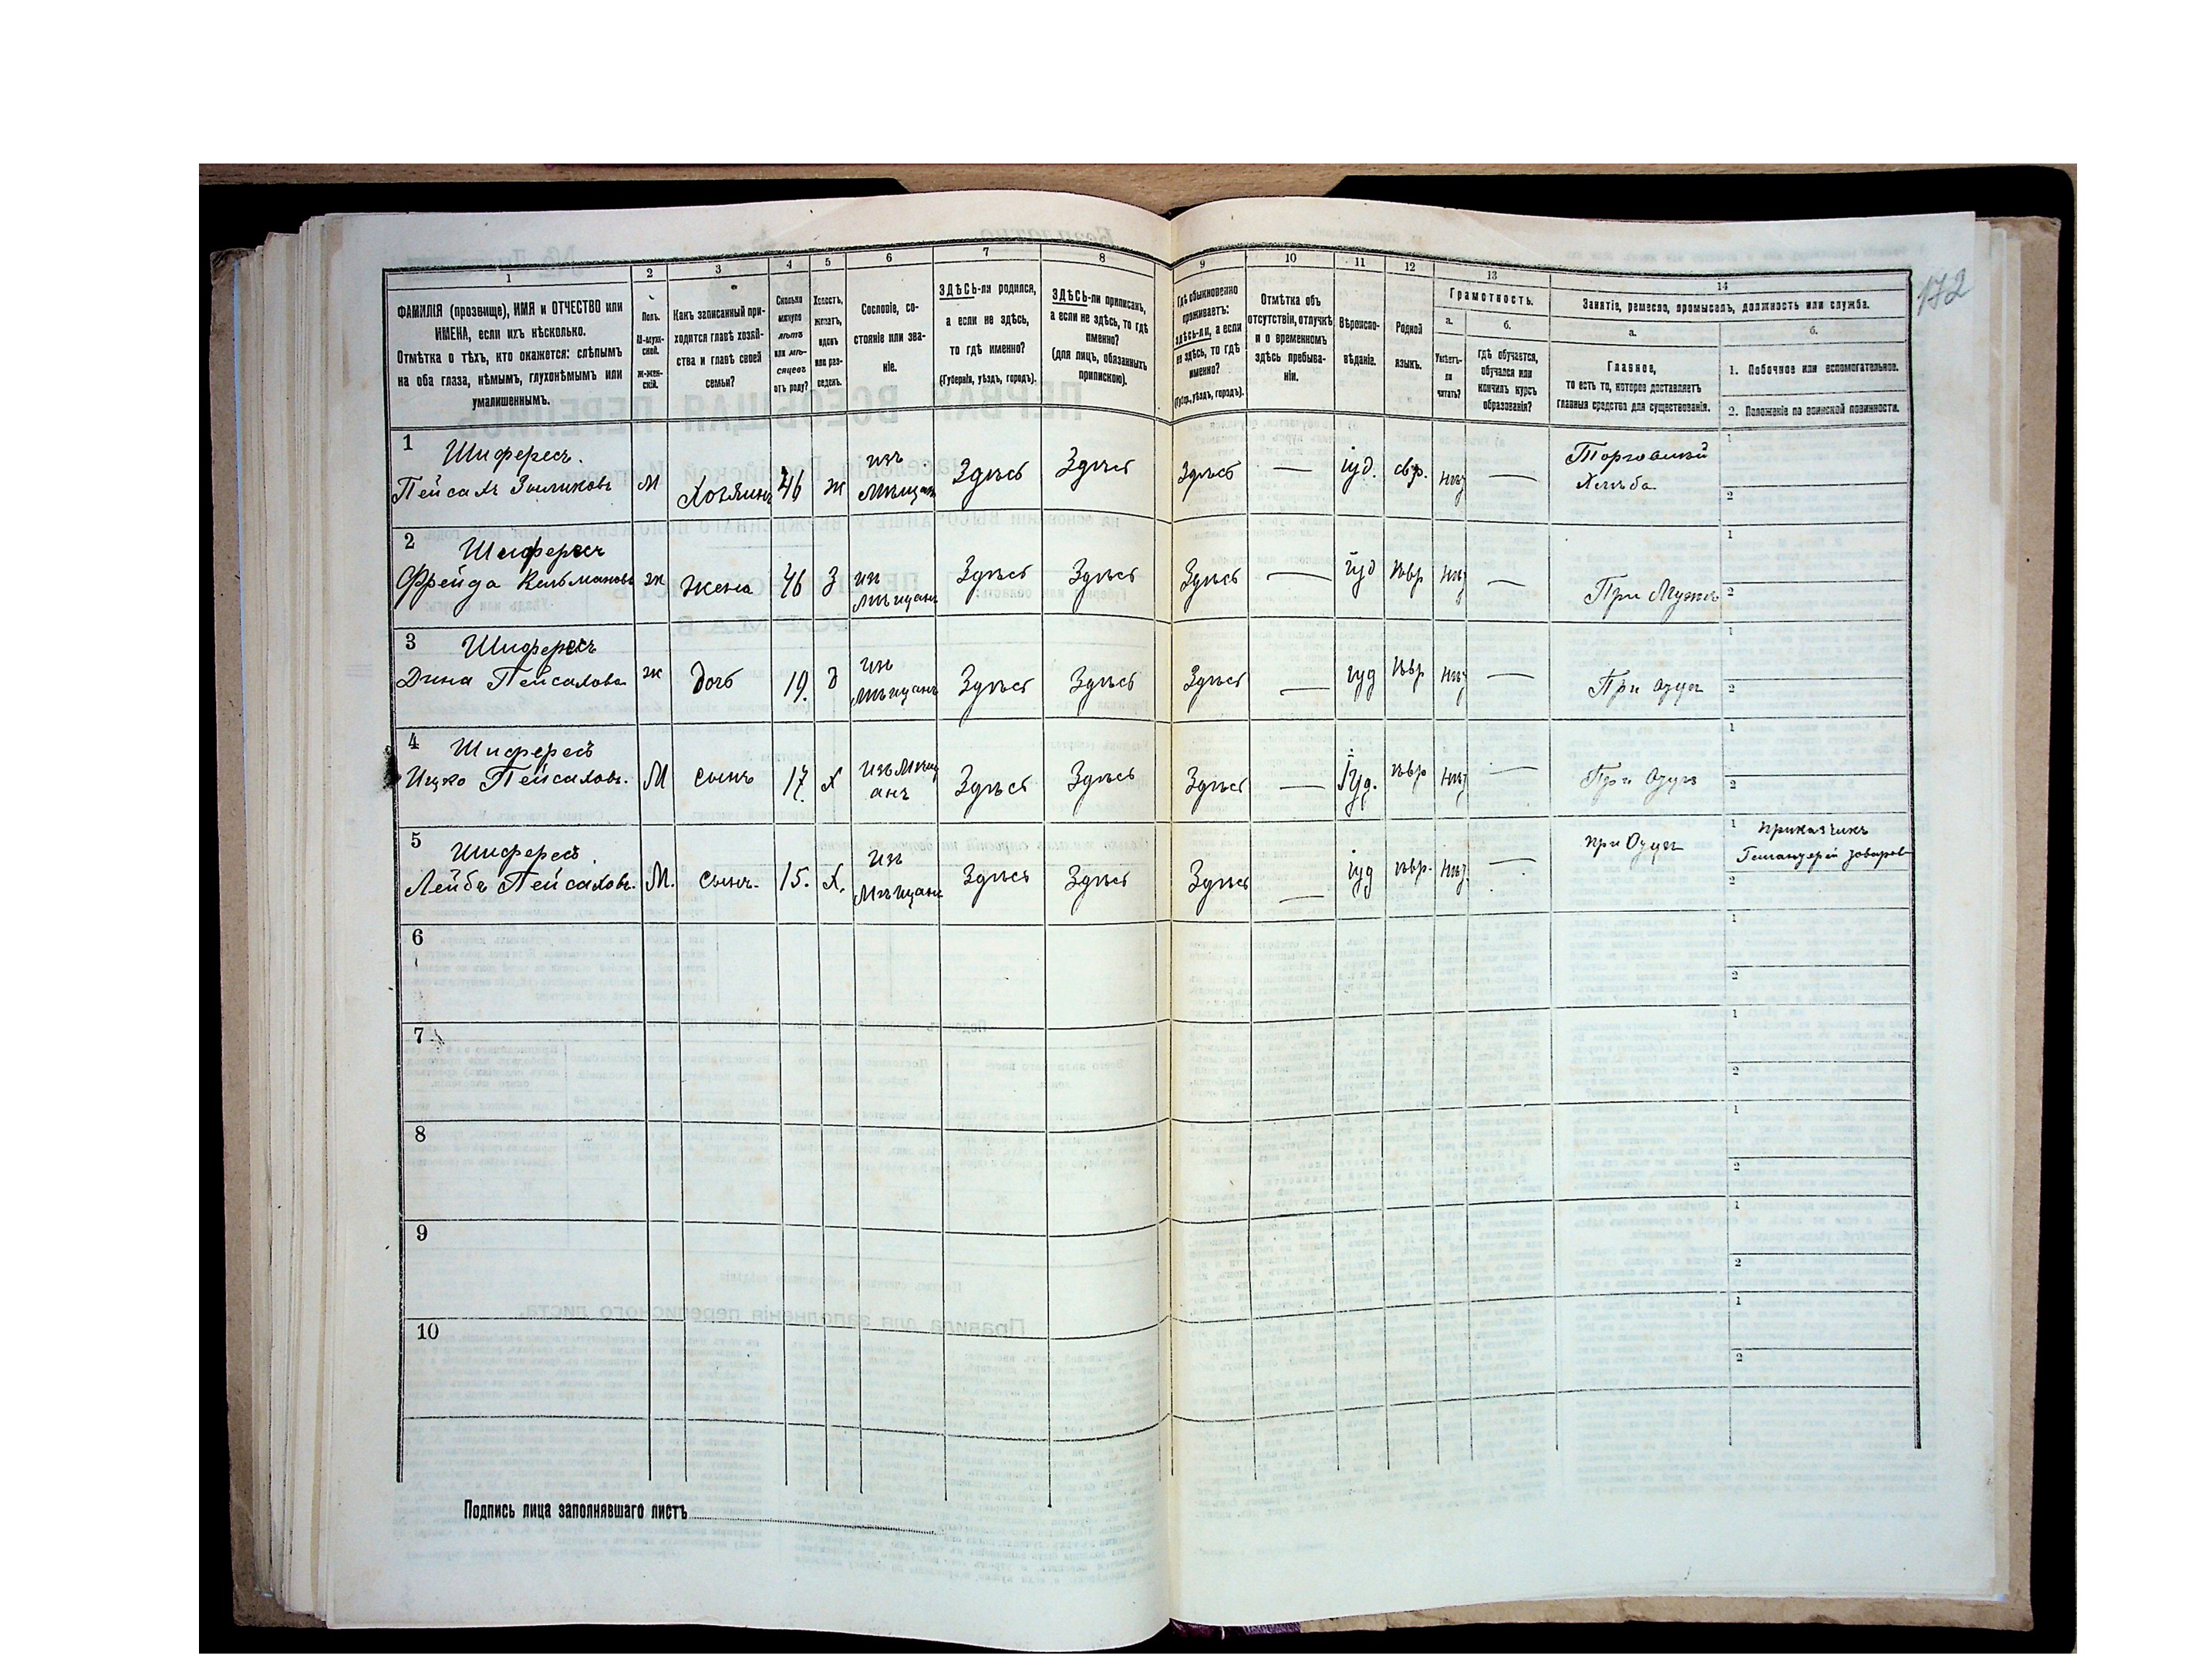 172
1 2 3 4 5 6 7 8 9 10 11 12 13 14
ФАМИЛІЯ (прозвище), ИМЯ и ОТЧЕСТВО или
ИМЕНА, если ихъ нѣсколько.
Отмѣтка о тѣхъ, кто окажется: слѣпымъ
на оба глаза, нѣмымъ, глухонѣмымъ или
умалишеннымъ.
Полъ.
М-муж-
ской.
Ж-жен-
скій.
Какъ записанный при-
ходится главѣ хозяй-
ства и главѣ своей
семьи?
Сколько
минуло
лѣтъ
или мѣ-
сяцевъ
отъ роду?
Холостъ,
женатъ,
вдовъ
или раз-
веденъ.
Сословіе, со-
стояніе или зва-
ніе.
ЗДѢСЬ-ли родился,
а если не здѣсь,
то гдѣ именно?
(Губернія, уѣздъ, городъ).
ЗДѢСЬ-ли приписанъ,
а если не здѣсь, то гдѣ
именно?
(для лицъ, обязанныхъ
припискою).
Гдѣ обыкновенно
проживаетъ:
здѣсь-ли, а если
не здѣсь, то гдѣ
именно?
(Губер., уѣздъ, городъ).
Отмѣтка объ
отсутствіи, отлучкѣ
и о временномъ
здѣсь пребыва-
ніи.
Вѣроиспо-
вѣданіе.
Родной
языкъ.
Грамотность.
а.
Умѣетъ-
ли
читать?
б.
гдѣ обучается,
обучался или
кончилъ курсъ
образованія?
Занятіе, ремесло, промыселъ, должность или служба.
а.
Главное,
то есть то, которое доставляетъ
главныя средства для существованія.
б.
1. Побочное или вспомогательное.
2. Положеніе по воинской повинности.
1 Шифересъ.
Пейсахъ м Хозяинъ 46 ж изъ Мѣщанъ Здѣсь Здѣсь Здѣсь — іуд. евр. нѣт — Торговецъ
Хлѣба
1
2
2 Шифересъ
Фрейда Кельманова ж жена 46 З из Мѣщанъ Здѣсь Здѣсь Здѣсь — іуд ѣвр нѣт — При Мужѣ
1
2
3 Шифересъ
Дина Пейсахова ж дочь 19. д изъ Мѣщанъ Здѣсь Здѣсь Здѣсь — іуд ѣвр нѣт — При Отцѣ
1
2
4 Шифересъ
Ицко Пейсаховъ. М сынъ 17. х изъ Мѣщ анъ Здѣсь Здѣсь Здѣсь — Іуд. ѣвр нѣт — При Отцѣ
1
2
5 Шифересъ.
Лейбъ Пейсаховъ. М. сынъ. 15. х. из Мѣщанъ Здѣсь Здѣсь Здѣсь — іуд ѣвр. нѣт — при Отцѣ
1 приказчикъ
товаровъ
2
6
1
2
7
1
2
8
1
2
9
1
2
10
1
2
Подпись лица заполнявшаго листъ